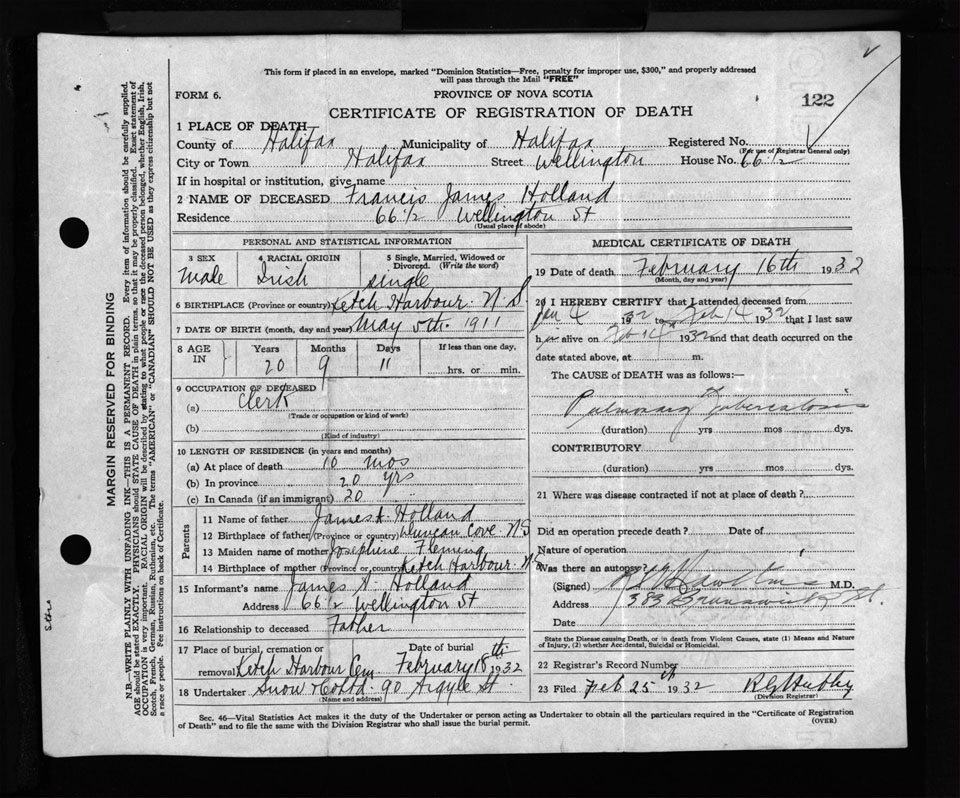 This form if placed in an envelope, marked "Dominion Statistics—Free, penalty for improper use, $300," and properly addressed
will pass through the Mail "FREE"
FORM 6. PROVINCE OF NOVA SCOTIA
122
CERTIFICATE OF REGISTRATION OF DEATH
1 PLACE OF DEATH
County of Halifax Municipality of Halifax Registered No.
(For use of Registrar General only)
City or Town Halifax Street Wellington House No. 66 1/2
If in hospital or institution, give name
2 NAME OF DECEASED Francis James Holland
Residence 66 1/2 Wellington St
(Usual place of abode)
PERSONAL AND STATISTICAL INFORMATION
3 SEX 4 RACIAL ORIGIN 5 Single, Married, Widowed or
Divorced. (Write the word)
Male Irish Single
6 BIRTHPLACE (Province or country) Ketch Harbour N S
7 DATE OF BIRTH (month, day and year) May 5th 1911
8 AGE IN Years Months Days If less than one day,
20 9 11 hrs. or min.
9 OCCUPATION OF DECEASED
(a) Clerk
(Trade or occupation or kind of work)
(b)
(Kind of industry)
10 LENGTH OF RESIDENCE (in years and months)
(a) At place of death 10 mos
(b) In province 20 yrs
(c) In Canada (if an immigrant) 20 "
Parents
11 Name of father James A. Holland
12 Birthplace of father (Province or country) Duncan Cove N S
13 Maiden name of mother Josephine Fleming
14 Birthplace of mother (Province or country) Ketch Harbour N S
15 Informant's name James A. Holland
Address 66 1/2 Wellington St
16 Relationship to deceased Father
17 Place of burial, cremation or Date of burial
removal Ketch Harbour Cem February 18th 1932
18 Undertaker Snow & Co Ltd. 90 Argyle St.
(Name and address)
MEDICAL CERTIFICATE OF DEATH
19 Date of death February 16th 1932
(Month, day and year)
20 I HEREBY CERTIFY that I attended deceased from
Jan 4 1932 to Feb 14 1932 that I last saw
him alive on Feb 14 1932 and that death occurred on the
date stated above, at m.
The CAUSE of DEATH was as follows:—
Pulmonary Tuberculosis
(duration) yrs mos dys.
CONTRIBUTORY
(duration) yrs mos dys.
21 Where was disease contracted if not at place of death?
Did an operation precede death? Date of
Nature of operation
Was there an autopsy?
(Signed) M.D.
Address 383 Brunswick St.
Date
State the Disease causing Death, or in death from Violent Causes, state (1) Means and Nature
of Injury, (2) whether Accidental, Suicidal or Homicidal.
22 Registrar's Record Number
23 Filed Feb 25th 1932
(Division Registrar)
Sec. 46—Vital Statistics Act makes it the duty of the Undertaker or person acting as Undertaker to obtain all the particulars required in the "Certificate of Registration
of Death" and to file the same with the Division Registrar who shall issue the burial permit. (OVER)
MARGIN RESERVED FOR BINDING
N.B.—WRITE PLAINLY WITH UNFADING INK—THIS IS A PERMANENT RECORD. Every item of information should be carefully supplied.
AGE should be stated EXACTLY. PHYSICIANS should STATE CAUSE OF DEATH in plain terms, so that it may be properly classified. Exact statement of
OCCUPATION is very important. RACIAL ORIGIN will be described by stating to what people or race the deceased person belonged, whether English, Irish,
Scotch, French, German, Russian, Ruthenian, etc. The terms "AMERICAN" or "CANADIAN" SHOULD NOT BE USED as they express citizenship but not
a race or people. Fee instructions on back of Certificate.